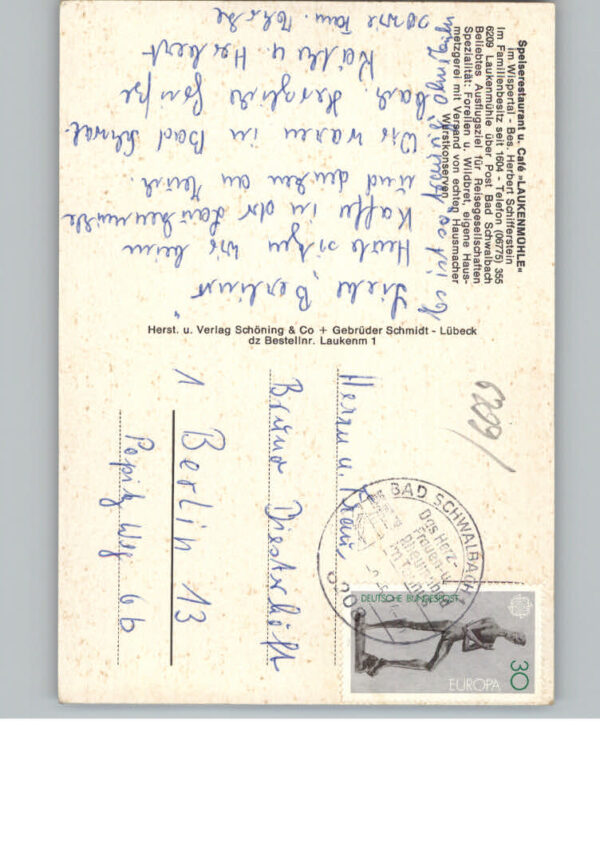 Speiserestaurant u. Café »LAUKENMÜHLE«
im Wispertal - Bes. Herbert Schifferstein
Im Familienbesitz seit 1604 - Telefon (06775) 355
6209 Laukenmühle über Post Bad Schwalbach
Beliebtes Ausflugsziel für Reisegesellschaften
Spezialität: Forellen u. Wildbret, eigene Haus-
metzgerei mit Versand von echten Hausmacher
Wurstkonserven
Liebe "Berliner"
Heute sitzen wir beim
Kaffee in der Laukenmühle
und denken an Euch.
Wir waren in Bad Schwal-
bach. Herzliche Grüße
Käthe u. Herbert
sowie Fam.
Herst. u. Verlag Schöning & Co + Gebrüder Schmidt - Lübeck
dz Bestellnr. Laukenm 1
6209/
Herrn u. Frau
Bruno Diesterhöft
1 Berlin 13
Popitz Weg 6b
BAD SCHWALBACH
Das Herz-
Frauen-u.
Rheuma-
im Taunus
6208
DEUTSCHE BUNDESPOST
EUROPA
30